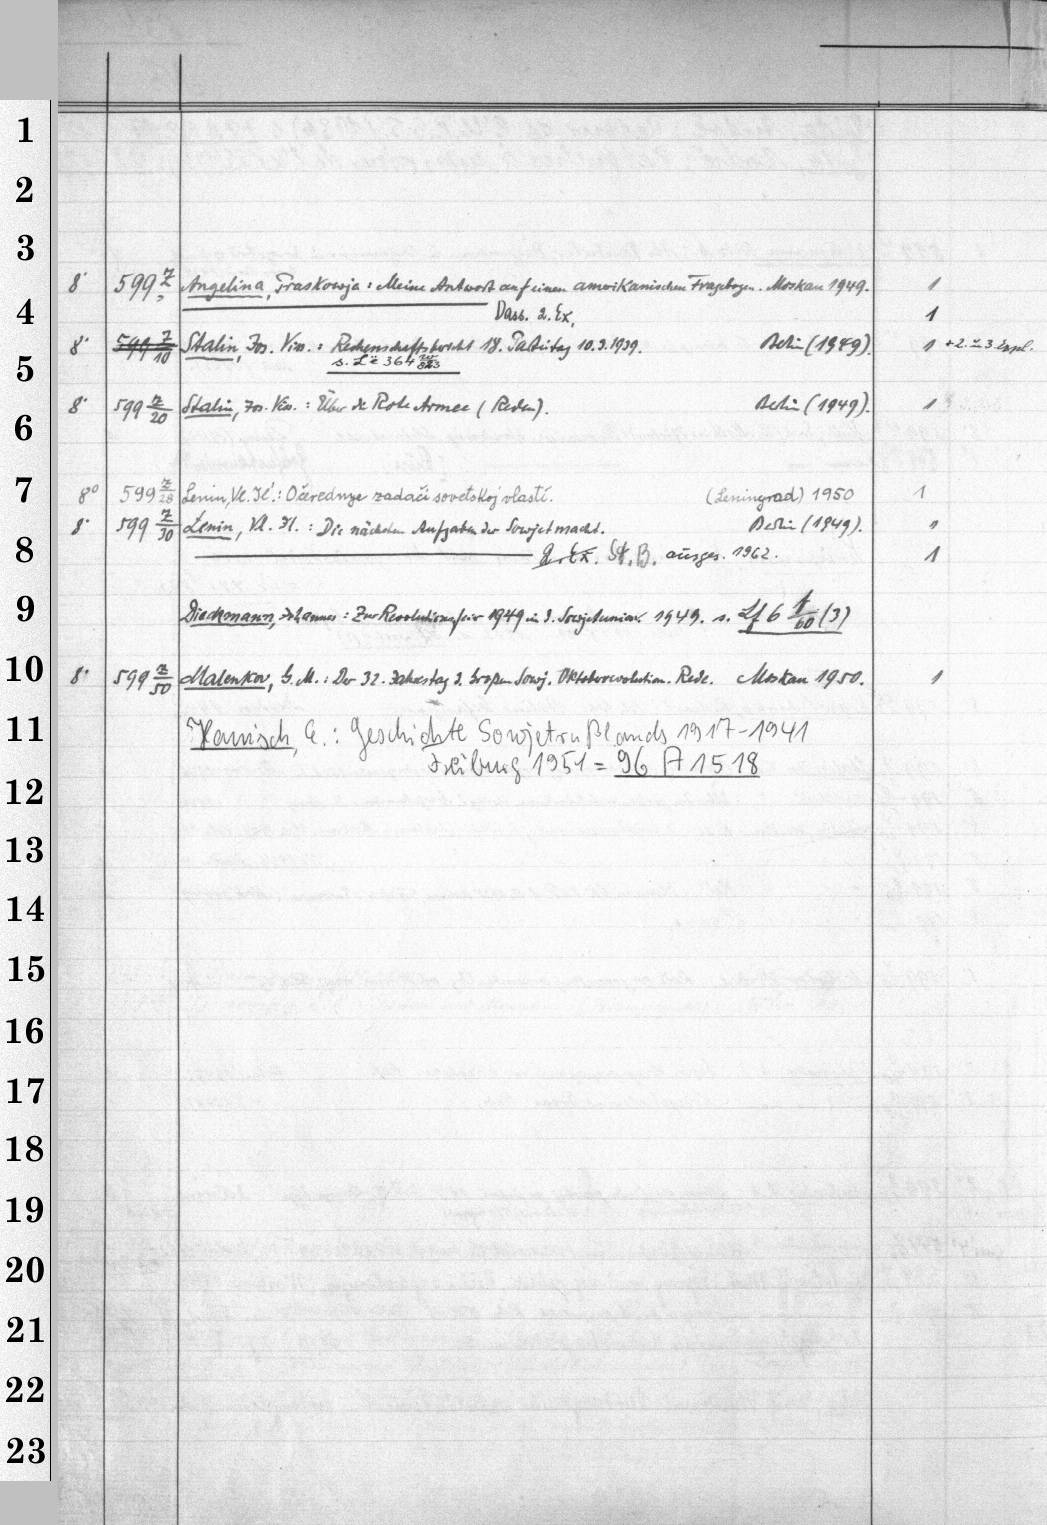 1
2
3
8° 599 z/, Angelina, Praskowja: Meine Antwort auf einen amerikanischen Fragebogen. Moskau 1949. 1
4
Dass. 2. Ex. 1
8° 599 z/10 Stalin, Jos. Viss.: Rechenschaftsbericht 18. Parteitag 10.3.1939. Berlin (1949). 1 + 2. u. 3 Expl.
5
s. Lc 364
8° 599 z/20 Stalin, Jos. Viss.: Über die Rote Armee (Reden). Berlin (1949). 1
6
7
8° 599 z/28 Lenin, Vl. Il'.: Očerednye zadači sovetskoj vlasti. (Leningrad) 1950 1
8° 599 z/30 Lenin, Vl. Il.: Die nächsten Aufgaben der Sowjetmacht. Berlin (1949). 1
8
2. Ex. St. B. ausges. 1962. 1
9
Dieckmann, Johannes: Zur Revolutionsfeier 1949 in d. Sowjetunion. 1949. s. Lf 6 t/60 (3)
10
8° 599 z/50 Malenkov, G. M.: Der 32. Jahrestag d. Großen Sowj. Oktoberrevolution. Rede. Moskau 1950. 1
11
Hanisch, E.: Geschichte Sowjetrußlands 1917-1941
Freiburg 1951 = 96 A 1518
12
13
14
15
16
17
18
19
20
21
22
23